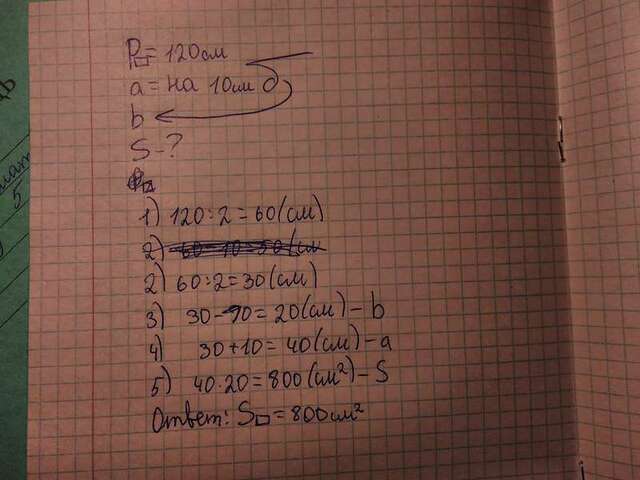 P▭ = 120см
a = на 10см б
b
S - ?
1) 120:2=60(см)
2) 60-10=50(см
2) 60:2=30(см)
3) 30-10=20(см)-b
4) 30+10=40(см)-a
5) 40·20=800(см²)-S
Ответ: S▭=800см²
5